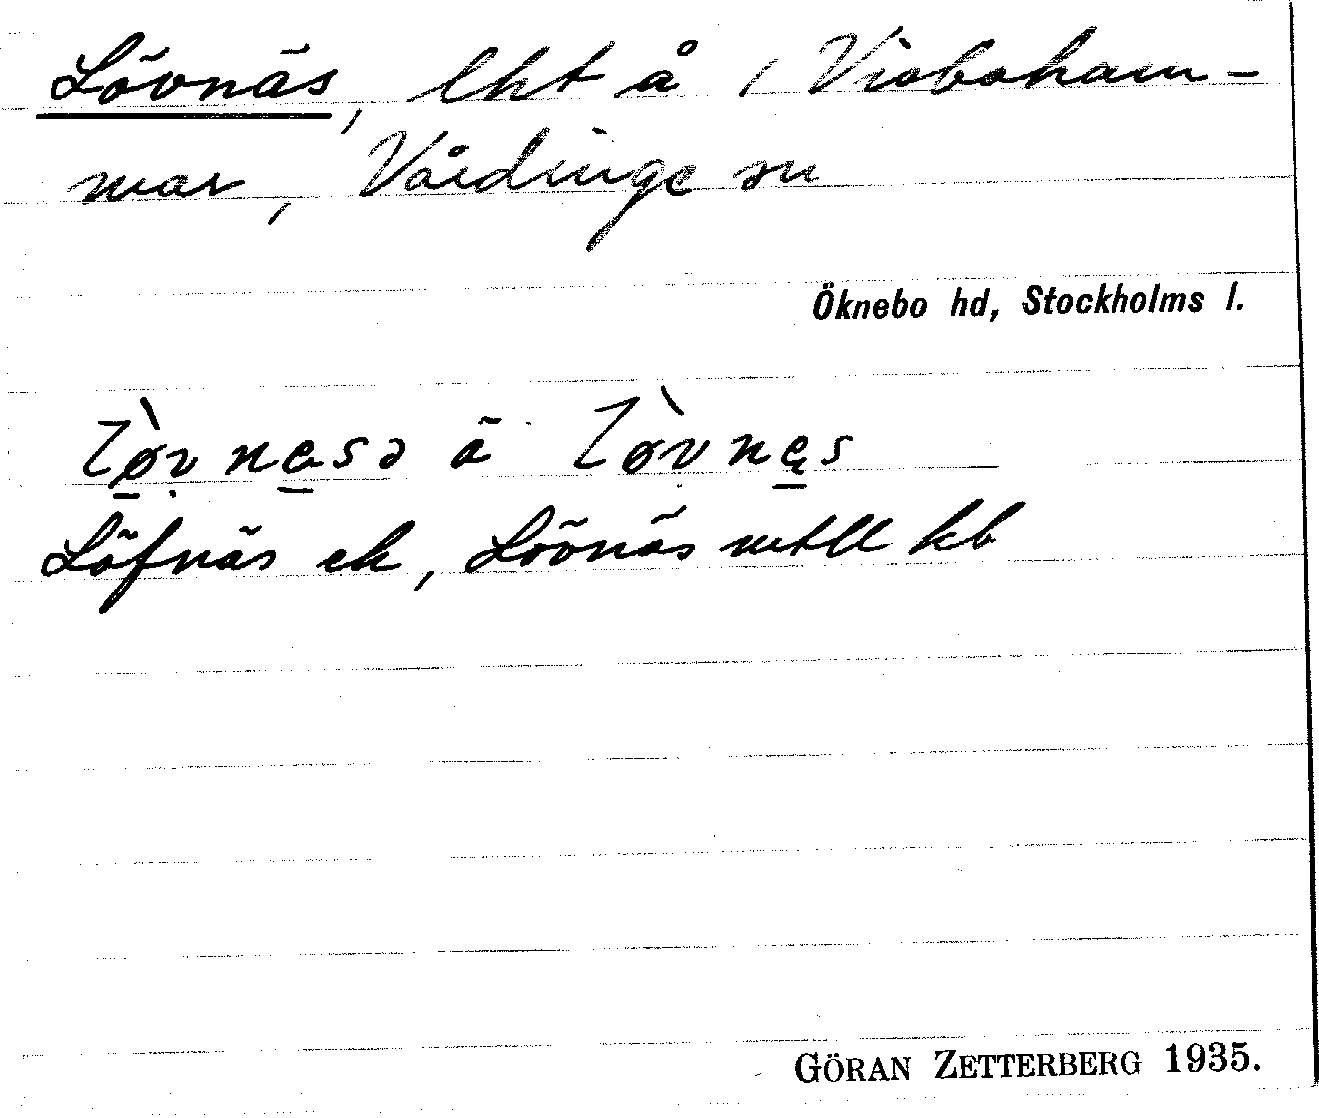 Lövnäs, lht å / Visboham-
mar, Vårdinge sn
Öknebo hd, Stockholms l.
lø̀vnęsə å lø̀vnęs
Löfnäs ek, Lövnäs mtll kb
GÖRAN ZETTERBERG 1935.